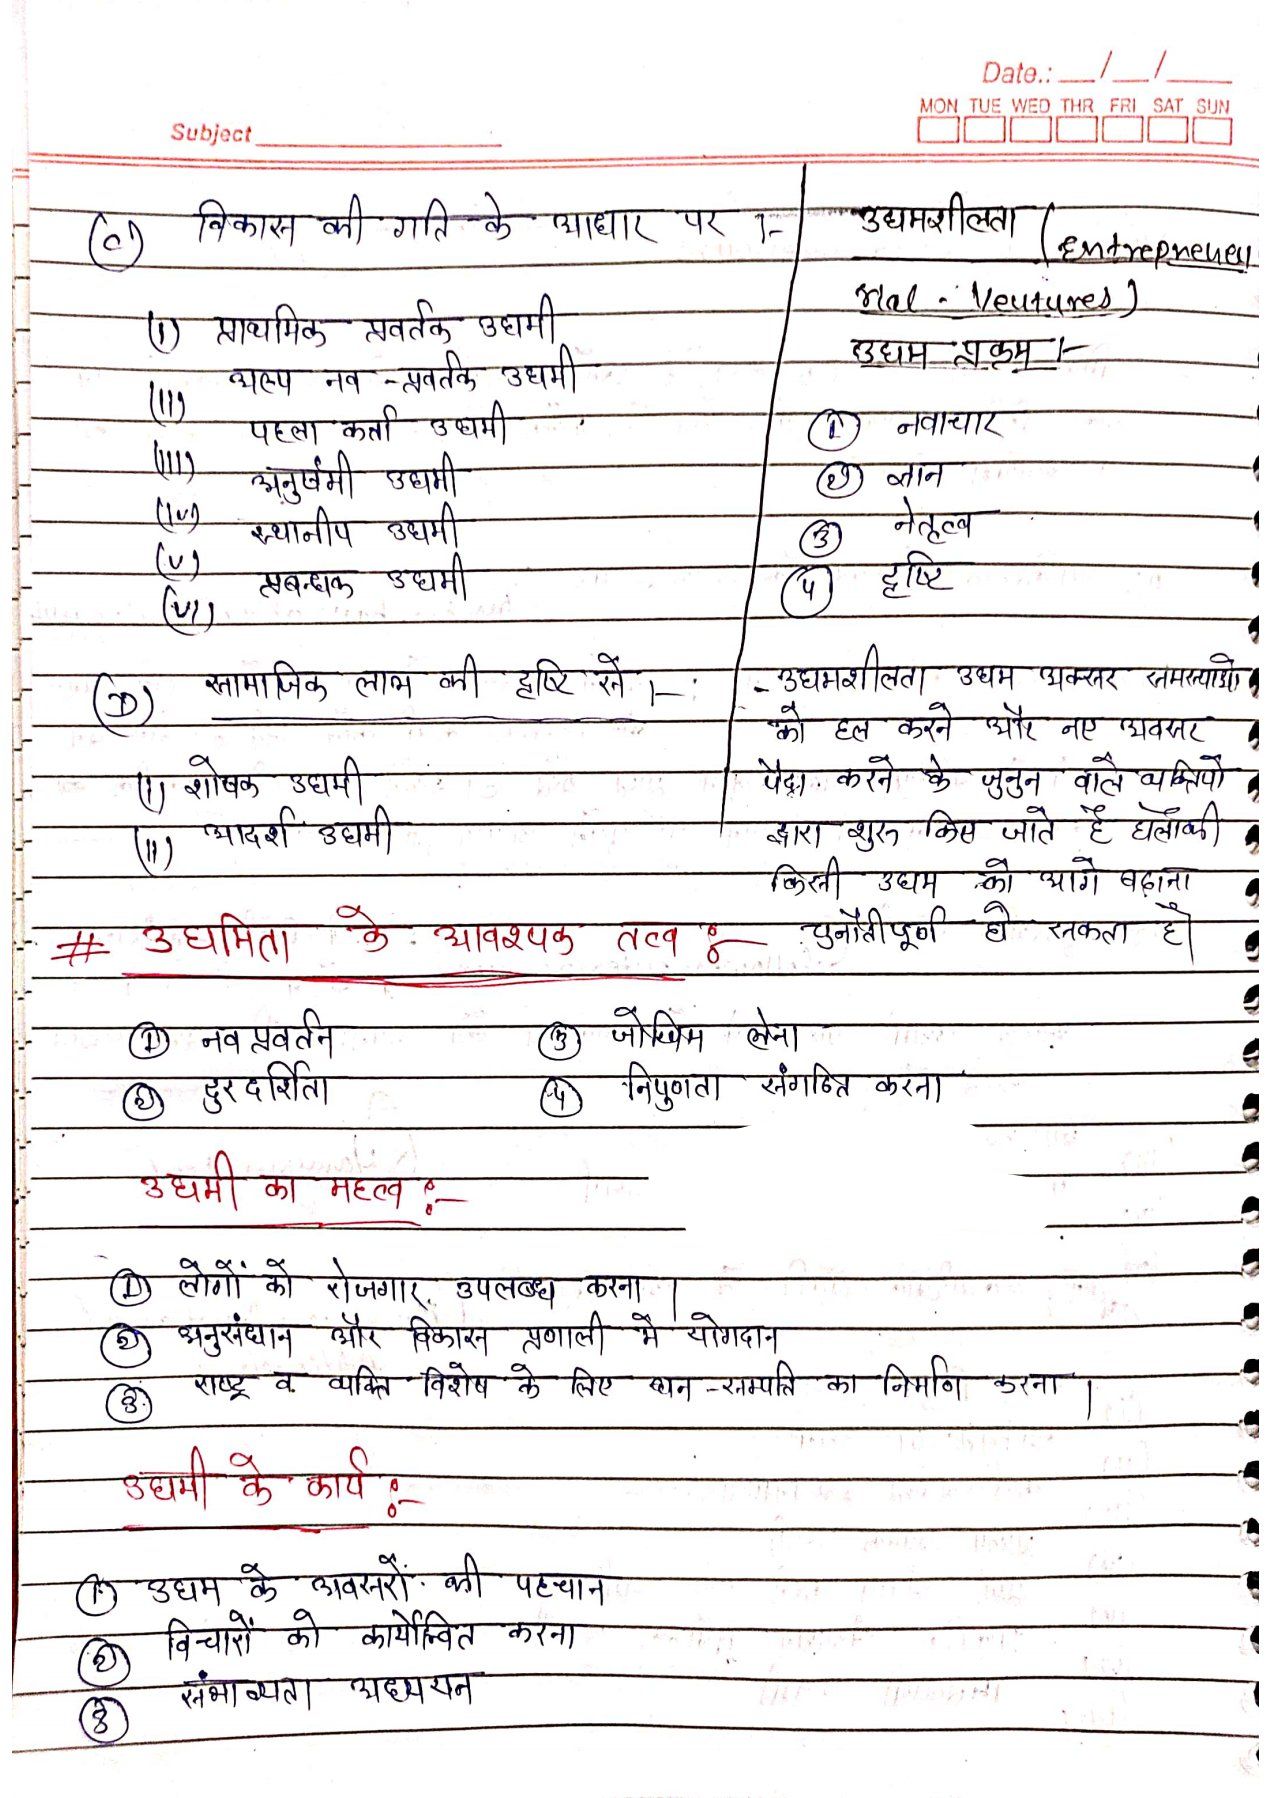 Date.: __/__/____
MON TUE WED THR FRI SAT SUN
Subject
(C) विकास की गति के आधार पर :-
(I) प्राथमिक प्रवर्तक उद्यमी
(II) अल्प नव-प्रवर्तक उद्यमी
(III) पहला कर्ता उद्यमी
(IV) उद्यमी
(V) स्थानीय उद्यमी
(VI) प्रबन्धक उद्यमी
(D) सामाजिक लाभ की दृष्टि से :-
(I) शोषक उद्यमी
(II) आदर्श उद्यमी
उद्यमशीलता (Entrepreneu
rial - Ventures)
उद्यम प्रक्रम :-
① नवाचार
② ज्ञान
③ नेतृत्व
④ दृष्टि
- उद्यमशीलता उद्यम अक्सर समस्याओ
को हल करने और नए अवसर
पैदा करने के जुनुन वाले व्यक्तियो
द्वारा शुरू किस जाते है हालाँकी
किसी उद्यम को आगे बढ़ाना
चुनौतीपूर्ण हो सकता है।
# उद्यमिता के आवश्यक तत्व :-
① नव प्रवर्तन
② दुरदर्शिता
③ जोखिम लेना
④ निपुणता संगठित करना
उद्यमी का महत्व :-
① लोगों को रोजगार उपलब्ध करना।
② अनुसंधान और विकास प्रणाली मे योगदान
③ राष्ट्र व व्यक्ति विशेष के लिए धन-सम्पति का निर्माण करना।
उद्यमी के कार्य :-
① उद्यम के अवसरों की पहचान
② विचारों को कार्योन्वित करना
③ संभाव्यता अध्ययन